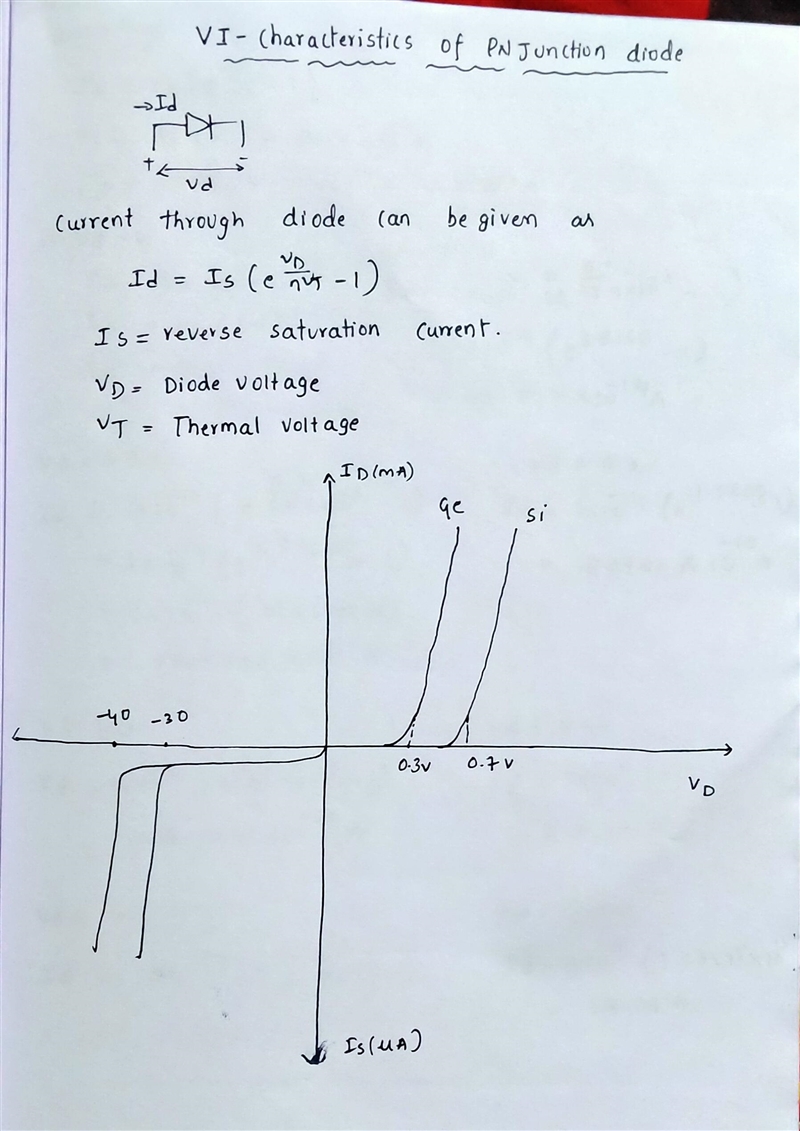 VI - Characteristics of PN Junction diode
→Id
+ -
Vd
Current through diode can be given as
Id = Is (e^(VD/ηVT) - 1)
Is = reverse saturation current.
VD = Diode voltage
VT = Thermal voltage
ID(mA)
Ge Si
-40 -30
0.3v 0.7v
VD
Is(μA)